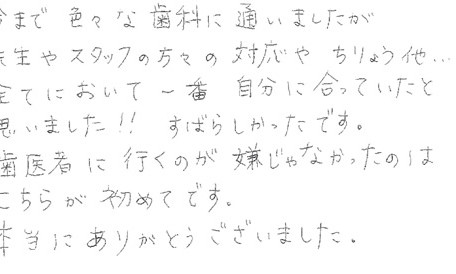 今まで 色々な 歯科に 通いましたが
先生や スタッフの方々の 対応や ちりょう他…
全てにおいて 一番 自分に合っていたと
思いました!! すばらしかったです。
歯医者に 行くのが 嫌じゃなかったのは
こちらが 初めてです。
本当に ありがとうございました。